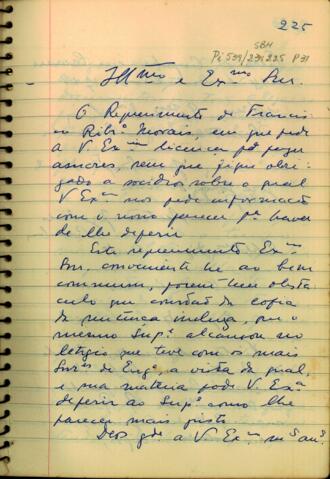 225
SBH
Pi 539/231225 P 31
Illmo e Exmo Snr.
O Requerimento de Francis-
co Ribro Morais, em que pede
a V Exma licença pa
, sem que fique obri-
gado a sobre o qual
V Exma nos pede informação
com o nosso parecer pa haver
de lhe deferir
Este requerimento Exmo
Snr. conveniente he ao bem
commum, porem tem obsta-
culo que consta da copia
da sentença incluza, que o
mesmo Supe alcançou no
letigio que teve com os mais
Snres de Engo, a vista da qual
e sua materia pode V. Exa
deferir ao Supe como lhe
parecer mais justo
Deos gde a V Exma ms ans